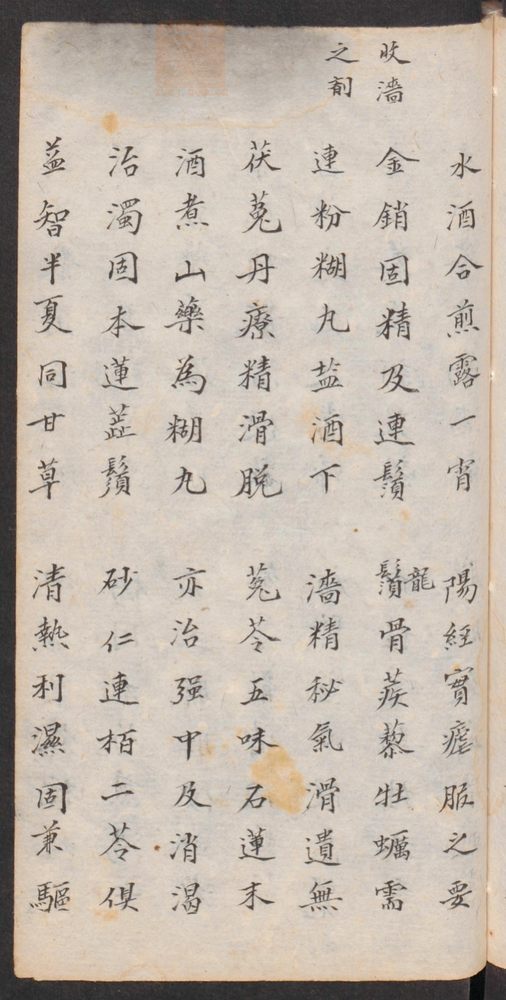 水酒合煎露一宵　陽經實瘧服之要
收濇
之剤
金銷固精及連鬚　鬚龍骨蒺藜牡蠣需
連粉糊丸盐酒下　濇精秘氣滑遺無
茯菟丹療精滑脫　菟苓五味石蓮末
酒煮山藥為糊丸　亦治强中及消渴
治濁固本蓮蕋鬚　砂仁連栢二苓俱
益智半夏同甘草　清熱利濕固兼驅